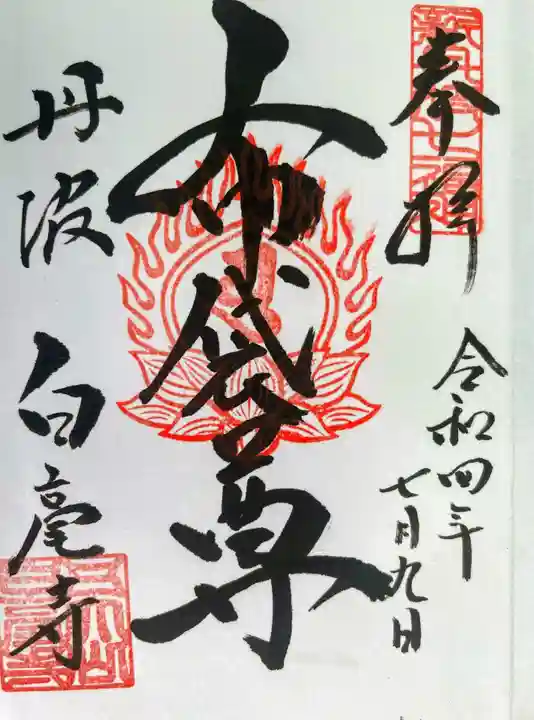 奉拝
令和四年
七月九日
布袋尊
丹波 白毫寺